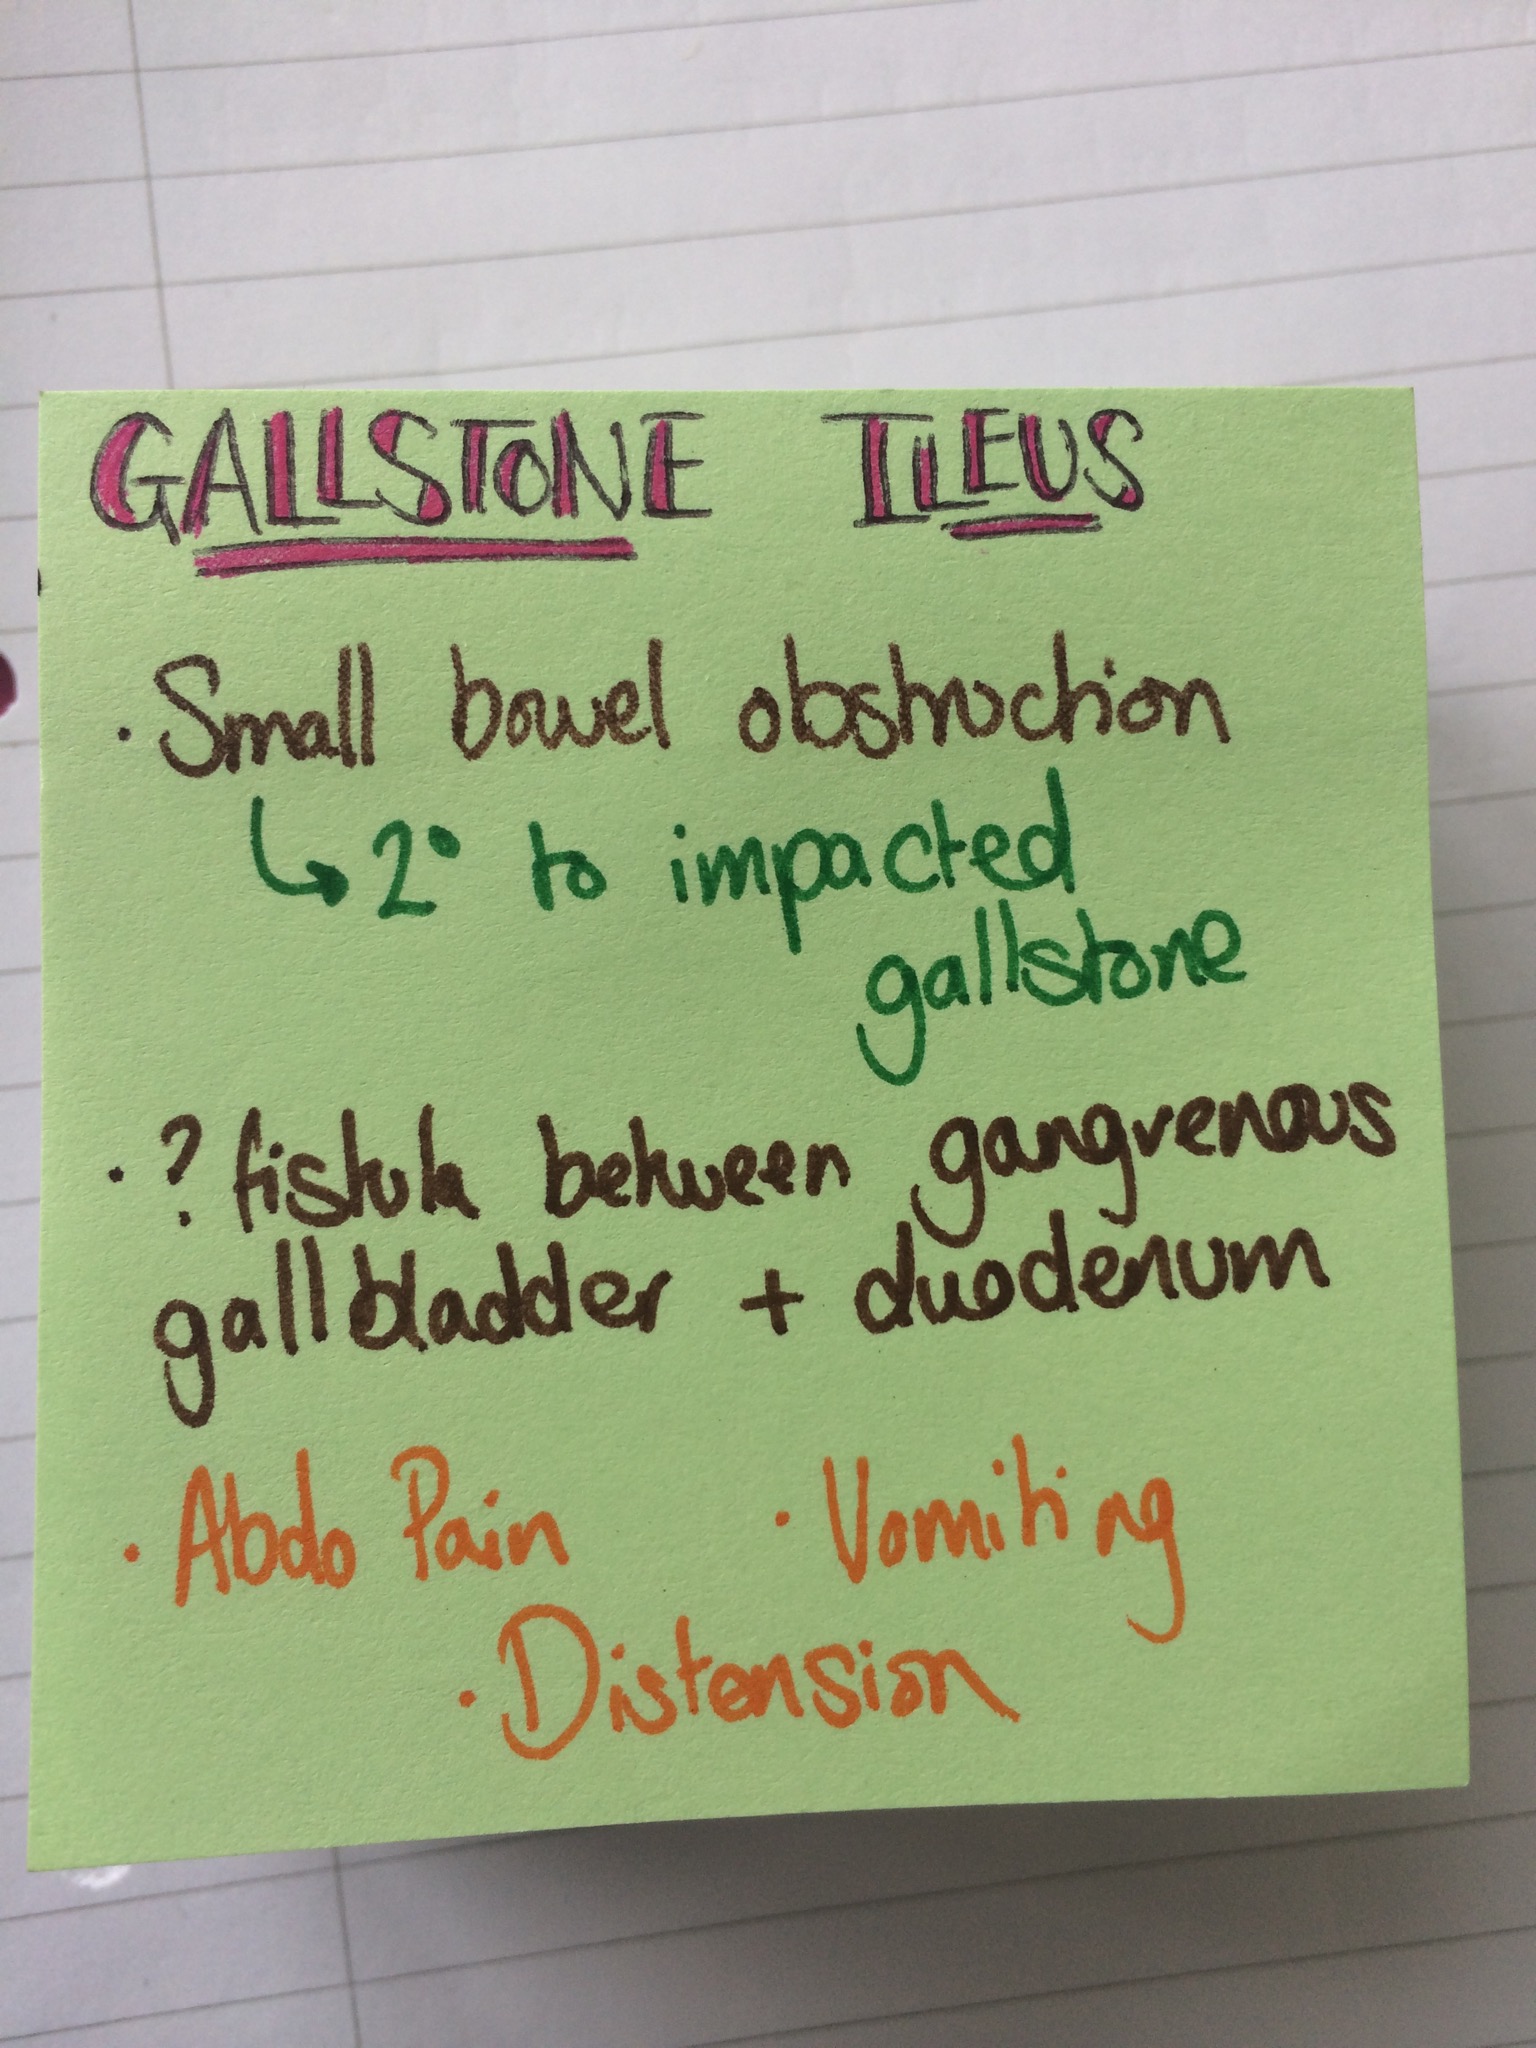 GALLSTONE ILEUS
· Small bowel obstruction
↳ 2° to impacted
gallstone
· ? fistula between gangrenous
gallbladder + duodenum
· Abdo Pain · Vomiting
· Distension